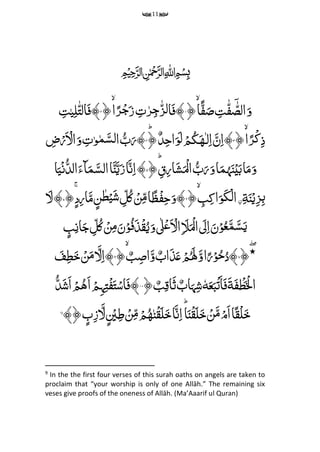 11
بِسْمِ اللهِ الرَّحْمٰنِ الرَّحِيْمِ
وَالصّٰٓفّٰتِ صَفًّا ۙ﴿۱﴾ فَالزّٰجِرٰتِ زَجْرًا ۙ﴿۲﴾ فَالتّٰلِيٰتِ
ذِكْرًا ۙ﴿۳﴾ اِنَّ اِلٰهَكُمْ لَوَاحِدٌ ؕ﴿۴﴾ رَبُّ السَّمٰوٰتِ وَالْاَرْضِ
وَمَا بَيْنَهُمَا وَرَبُّ الْمَشَارِقِ ؕ﴿۵﴾ اِنَّا زَيَّنَّا السَّمَآءَ الدُّنْيَا
بِزِيْنَةِ ۨالْكَوَاكِبِ ۙ﴿۶﴾ وَحِفْظًا مِّنْ كُلِّ شَيْطٰنٍ مَّارِدٍ ۚ﴿۷﴾ لَا
يَسَّمَّعُوْنَ اِلَى الْمَلَاِ الْاَعْلٰى وَيُقْذَفُوْنَ مِنْ كُلِّ جَانِبٍ
٭ۖ﴿۸﴾ دُحُوْرًا وَّلَهُمْ عَذَابٌ وَّاصِبٌ ۙ﴿۹﴾ اِلَّا مَنْ خَطِفَ
الْخَطْفَةَ فَاَتْبَعَهٗ شِهَابٌ ثَاقِبٌ ﴿۱۰﴾ فَاسْتَفْتِهِمْ اَهُمْ اَشَدُّ
خَلْقًا اَمْ مَّنْ خَلَقْنَا ؕ اِنَّا خَلَقْنٰهُمْ مِّنْ طِيْنٍ لَّازِبٍ ﴿۱۱﴾ 9
9 In the the first four verses of this surah oaths on angels are taken to
proclaim that “your worship is only of one Allāh.” The remaining six
veses give proofs of the oneness of Allāh. (Ma’Aaarif ul Quran)